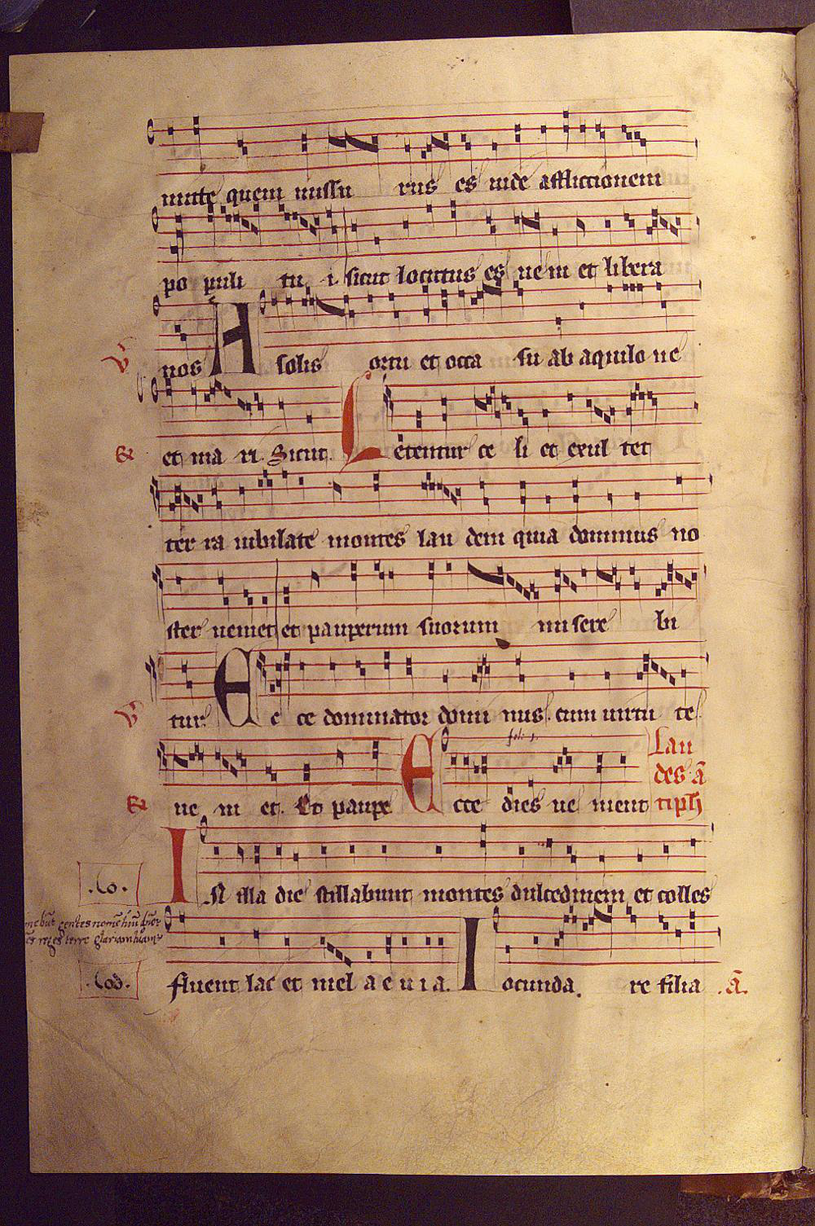 mitte quem missu rus es uide afflictionem
po puli tu i sicut locutus es ue ni et libera
℣ nos A solis ortu et occa su ab aquilo ne
℟ et ma ri. Sicut. Letentur ce li et exul tet
ter ra iubilate montes lau dem quia dominus no
ster ueniet et pauperum suorum mi sere bi
℣ tur. Ec ce dominator domi nus. cum uirtu te
℟ ue ni et. Et paupe Ecce dies ue nient
Lau
des ā
tiph
.Co. IN illa die stillabunt montes dulcedinem et colles
.Cod. fluent lac et mel a e u i a. Iocunda re filia .ā.